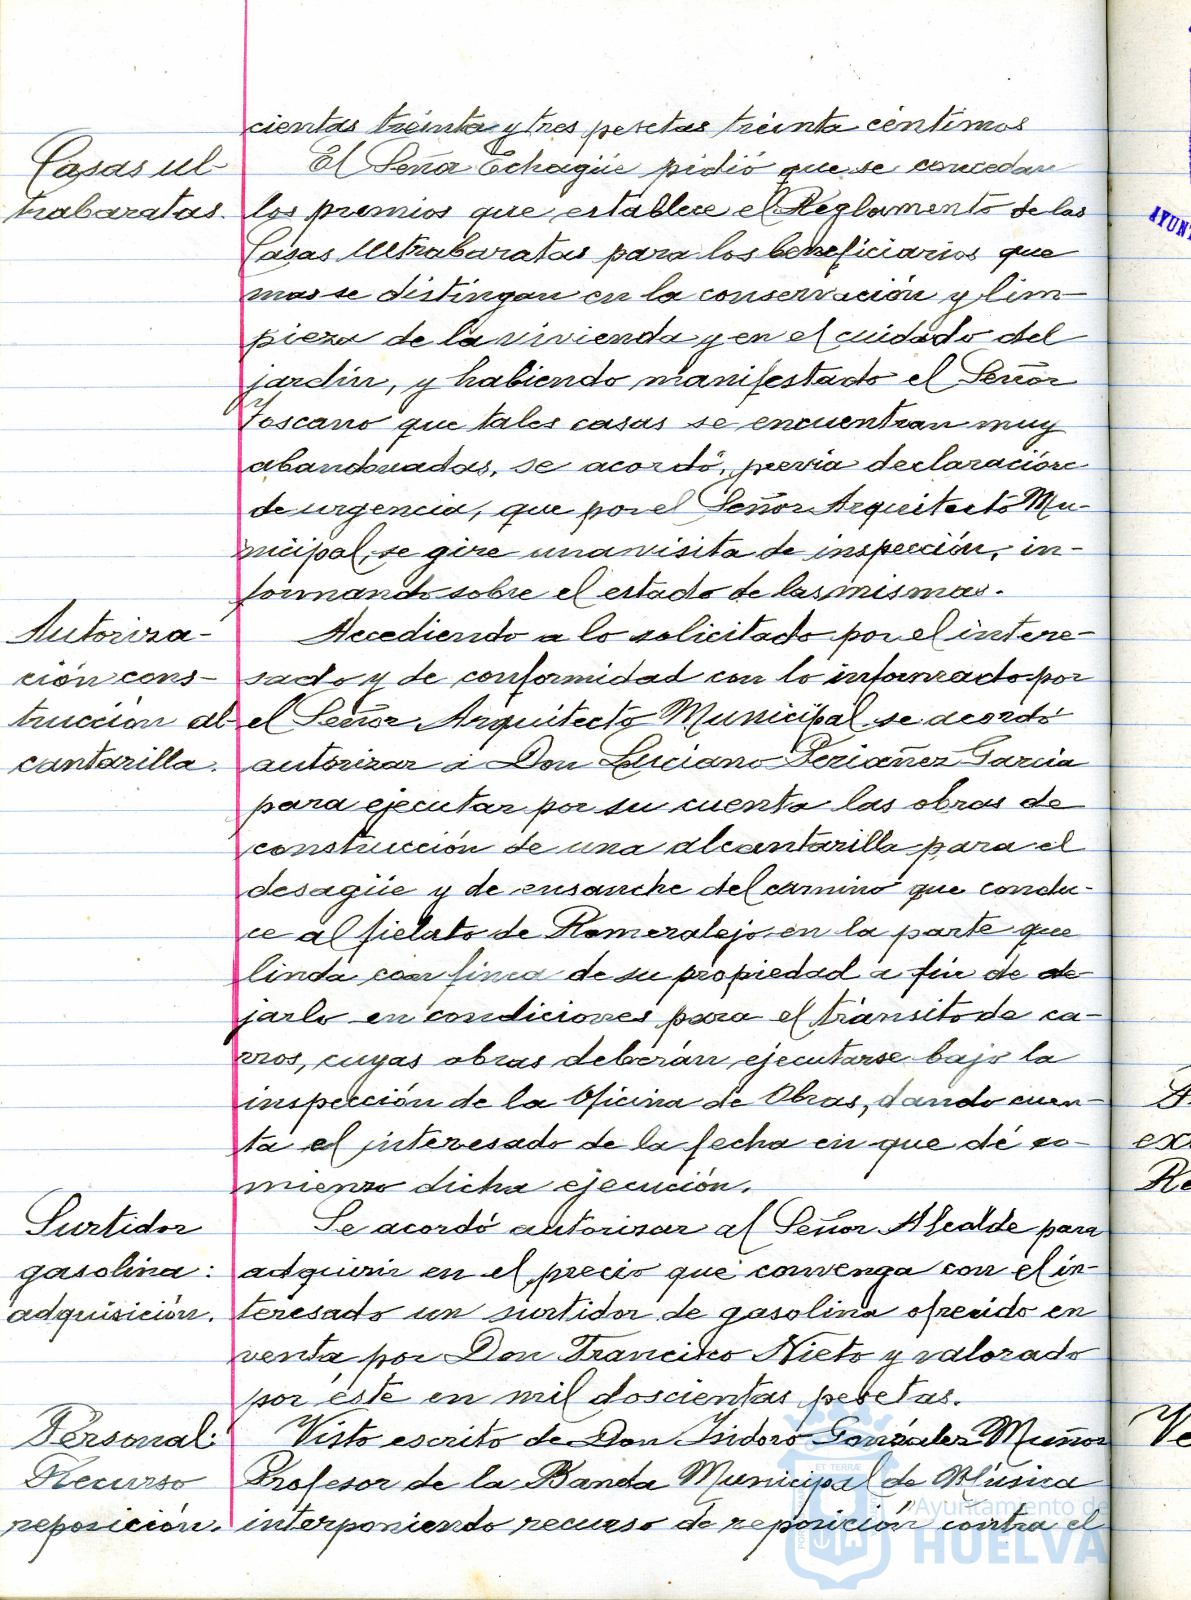 cientas treinta y tres pesetas treinta céntimos
Casas ul-
trabaratas.
El Señor Echagüe pidió que se concedan
los premios que establece el Reglamento de las
Casas Ultrabaratas para los beneficiarios que
mas se distingan en la conservación y lim-
pieza de la vivienda y en el cuidado del
jardín, y habiendo manifestado el Señor
Toscano que tales casas se encuentran muy
abandonadas, se acordó, previa declaración
de urgencia, que por el Señor Arquitecto Mu-
nicipal, se gire una visita de inspección, in-
formando sobre el estado de las mismas.
Autoriza-
ción cons-
trucción al-
cantarilla.
Accediendo a lo solicitado por el intere-
sado y de conformidad con lo informado por
el Señor Arquitecto Municipal se acordó
autorizar a Don Luciano Periañez Garcia
para ejecutar por su cuenta las obras de
construcción de una alcantarilla para el
desagüe y de ensanche del camino que condu-
ce al fielato de Romeralejo en la parte que
linda con finca de su propiedad a fin de de-
jarlo en condiciones para el tránsito de ca-
rros, cuyas obras deberán ejecutarse bajo la
inspección de la Oficina de Obras, dando cuen-
ta el interesado de la fecha en que dé co-
mienzo dicha ejecución.
Surtidor
gasolina:
adquisición.
Se acordó autorizar al Señor Alcalde para
adquirir en el precio que convenga con el in-
teresado un surtidor de gasolina ofrecido en
venta por Don Francisco Nieto y valorado
por éste en mil doscientas pesetas.
Personal:
Recurso
reposición.
Visto escrito de Don Isidoro González Muñoz
Profesor de la Banda Municipal de Música
interponiendo recurso de reposición contra el
Ayuntamiento de
HUELVA
AYUNT
ex
Re
Ve